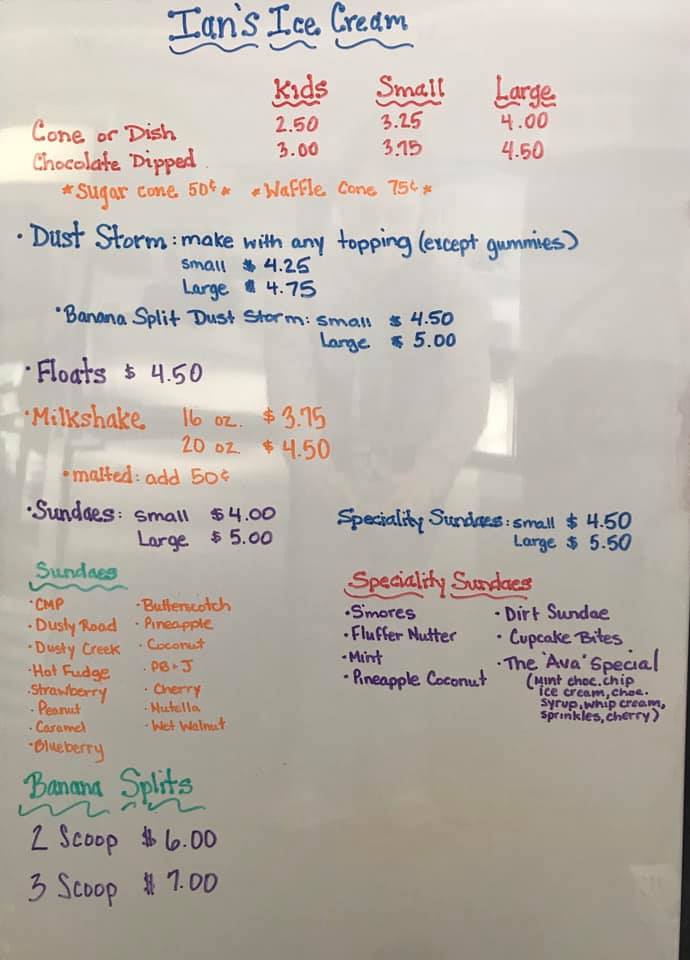 Ian's Ice Cream
Kids Small Large
Cone or Dish 2.50 3.25 4.00
Chocolate Dipped 3.00 3.75 4.50
*Sugar cone 50¢* *Waffle Cone 75¢*
• Dust Storm: make with any topping (except gummies)
small $ 4.25
Large $ 4.75
• Banana Split Dust Storm: small $ 4.50
Large $ 5.00
• Floats $ 4.50
• Milkshake 16 oz. $ 3.75
20 oz. $ 4.50
• malted: add 50¢
• Sundaes: small $4.00
Large $ 5.00
Speciality Sundaes: small $ 4.50
Large $ 5.50
Sundaes
• CMP
• Dusty Road
• Dusty Creek
• Hot Fudge
• Strawberry
• Peanut
• Caramel
• Blueberry
• Butterscotch
• Pineapple
• Coconut
• PB+J
• Cherry
• Nutella
• Wet Walnut
Speciality Sundaes
• S'mores
• Fluffer Nutter
• Mint
• Pineapple Coconut
• Dirt Sundae
• Cupcake Bites
• The "Ava" Special
(Mint choc. chip
ice cream, choc.
syrup, whip cream,
sprinkles, cherry)
Banana Splits
2 Scoop $ 6.00
3 Scoop $ 7.00